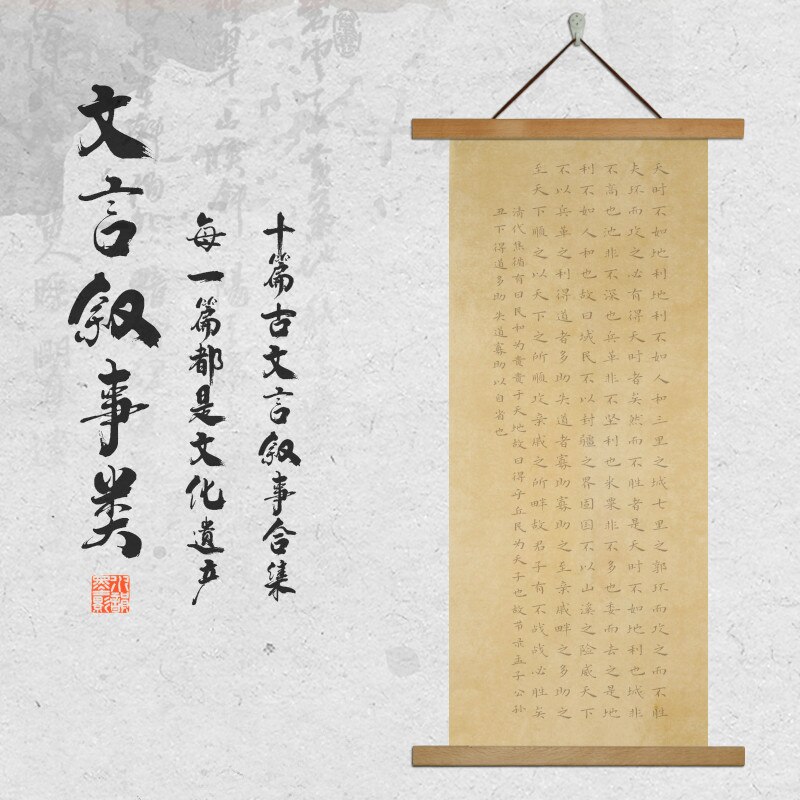 文言叙事类
十篇古文言叙事合集
每一篇都是文化遗产
天时不如地利地利不如人和三里之城七里之郭环而攻之而不胜
夫环而攻之必有得天时者矣然而不胜者是天时不如地利也城非
不高也池非不深也兵革非不坚利也米粟非不多也委而去之是地
利不如人和也故曰域民不以封疆之界固国不以山溪之险威天下
不以兵革之利得道者多助失道者寡助寡助之至亲戚畔之多助之
至天下顺之以天下之所顺攻亲戚之所畔故君子有不战战必胜矣
清代焦循有曰民和为贵贵于天地故曰得乎丘民为天子也故节录孟子公孙
丑下得道多助失道寡助以自省也